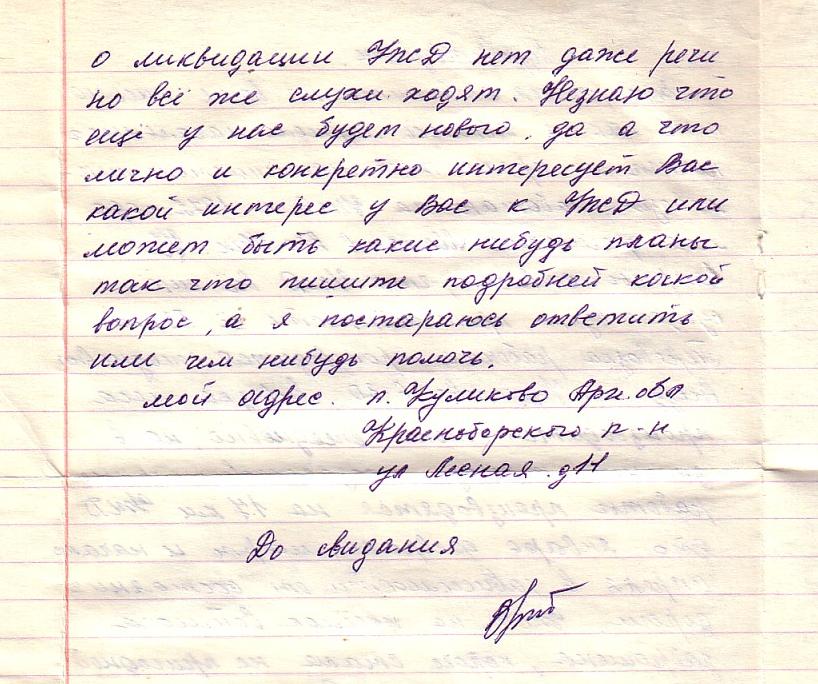 о ликвидации УЖД нет даже речи
но всё же слухи ходят. Незнаю что
ещё у нас будет нового, да а что
лично и конкретно интересует Вас
какой интерес у Вас к УЖД или
может быть какие нибудь планы
так что пишите подробней какой
вопрос, а я постараюсь ответить
или чем нибудь помочь.
мой адрес. п. Куликово Арх. обл
Красноборского р-н
ул Лесная. д11
До свидания